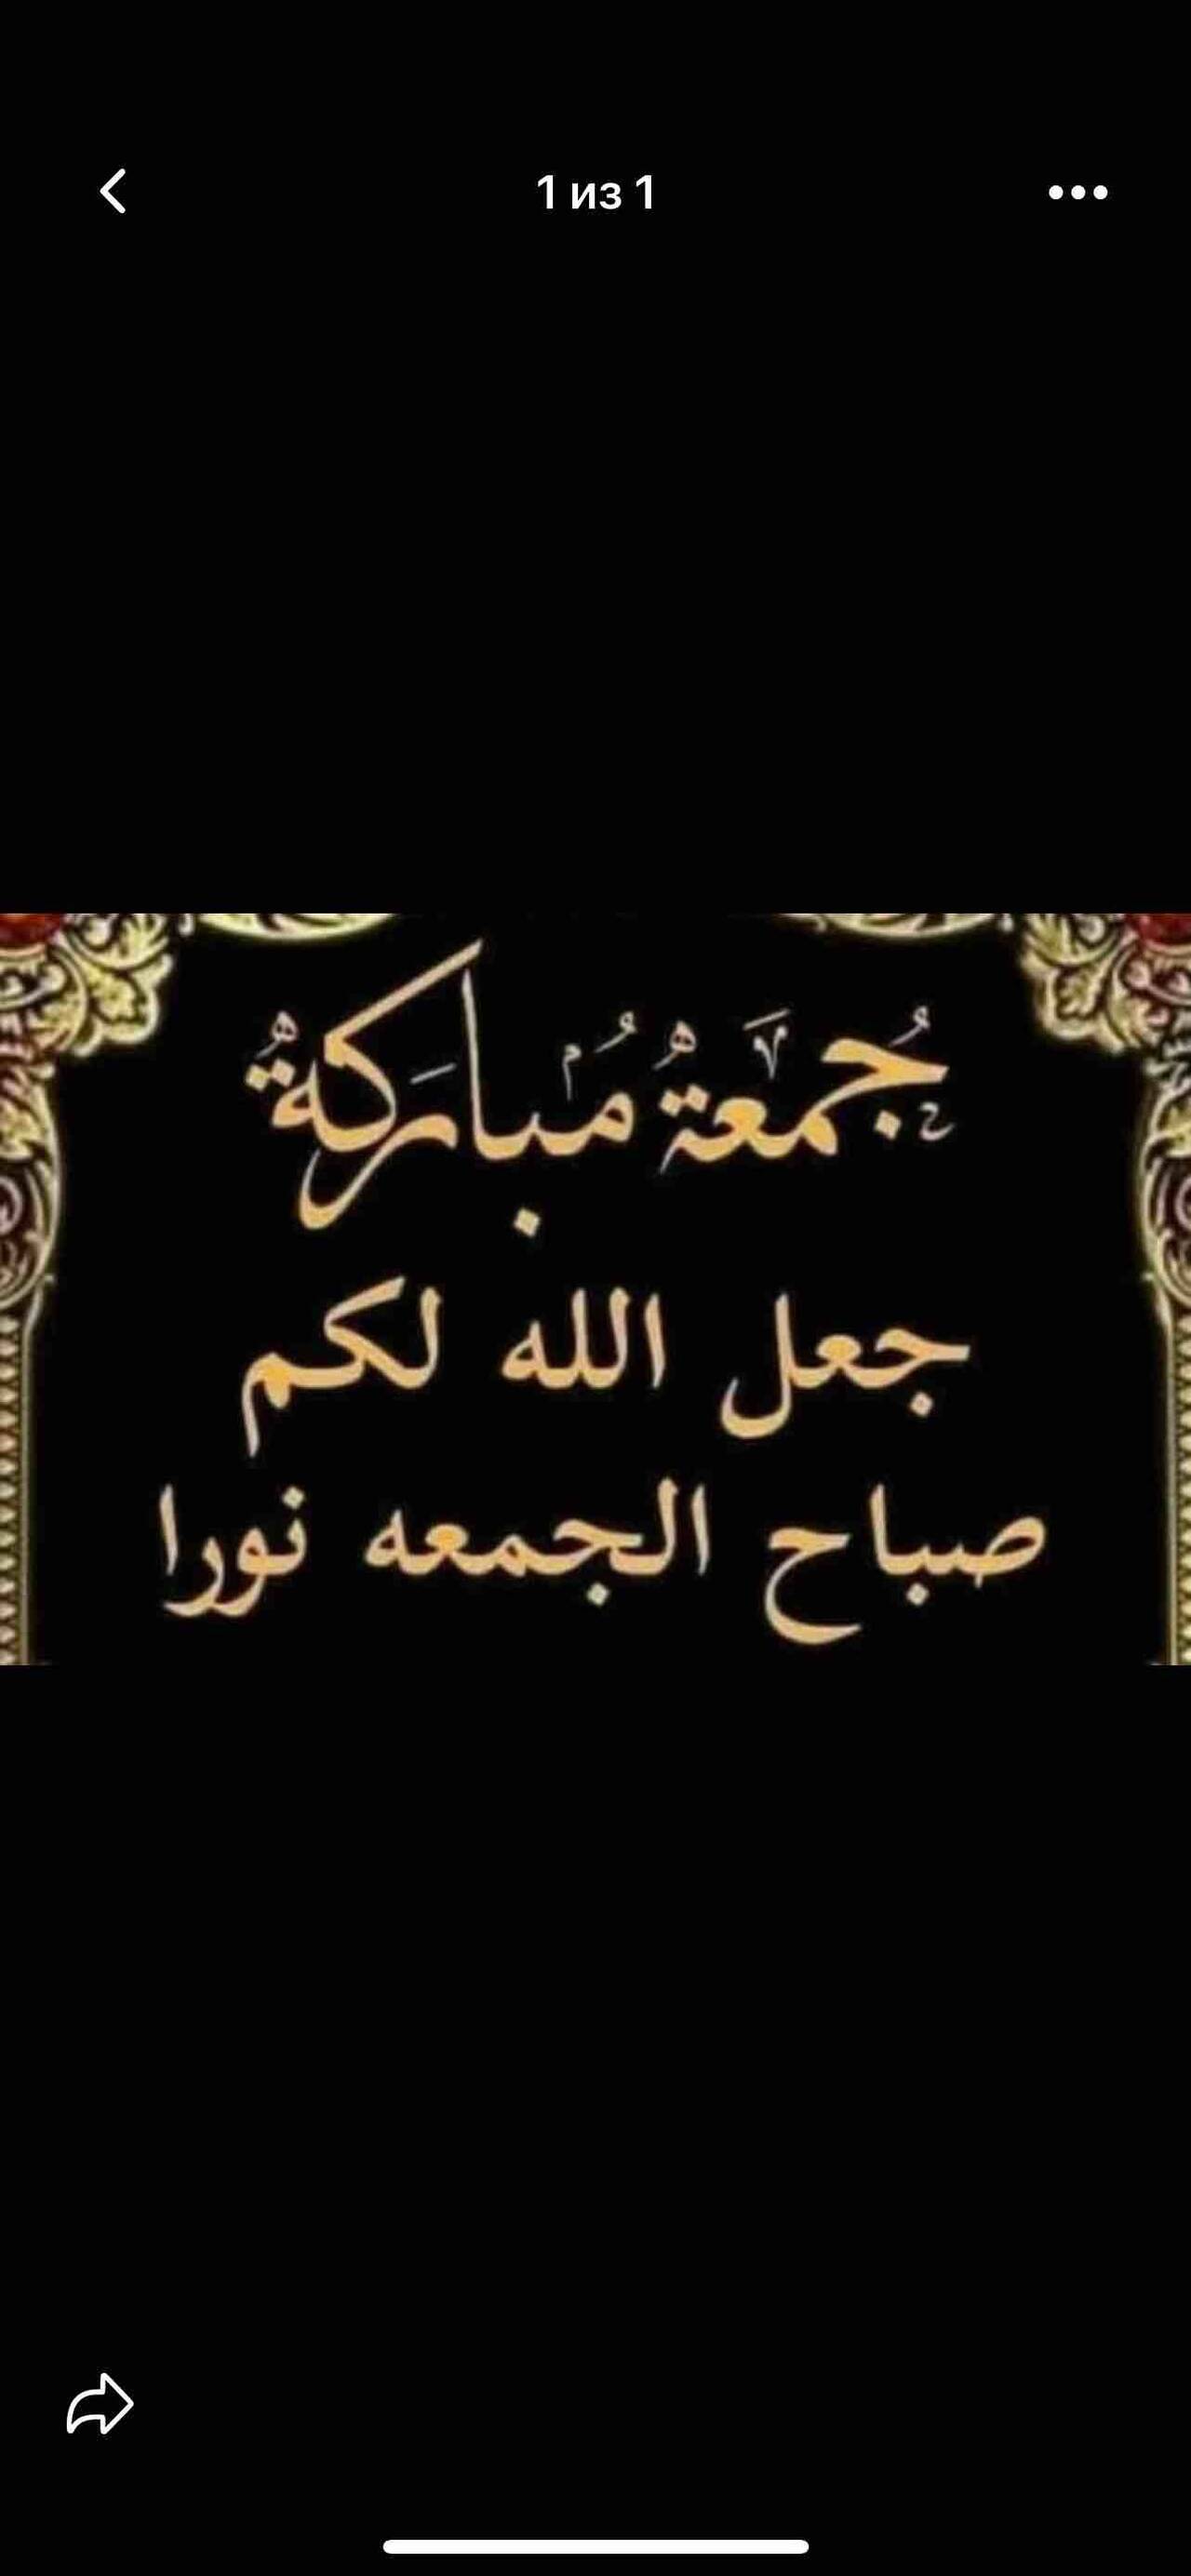 1 из 1
جُمعةُ مُباركةُ
جعل الله لكم
صباح الجمعه نورا